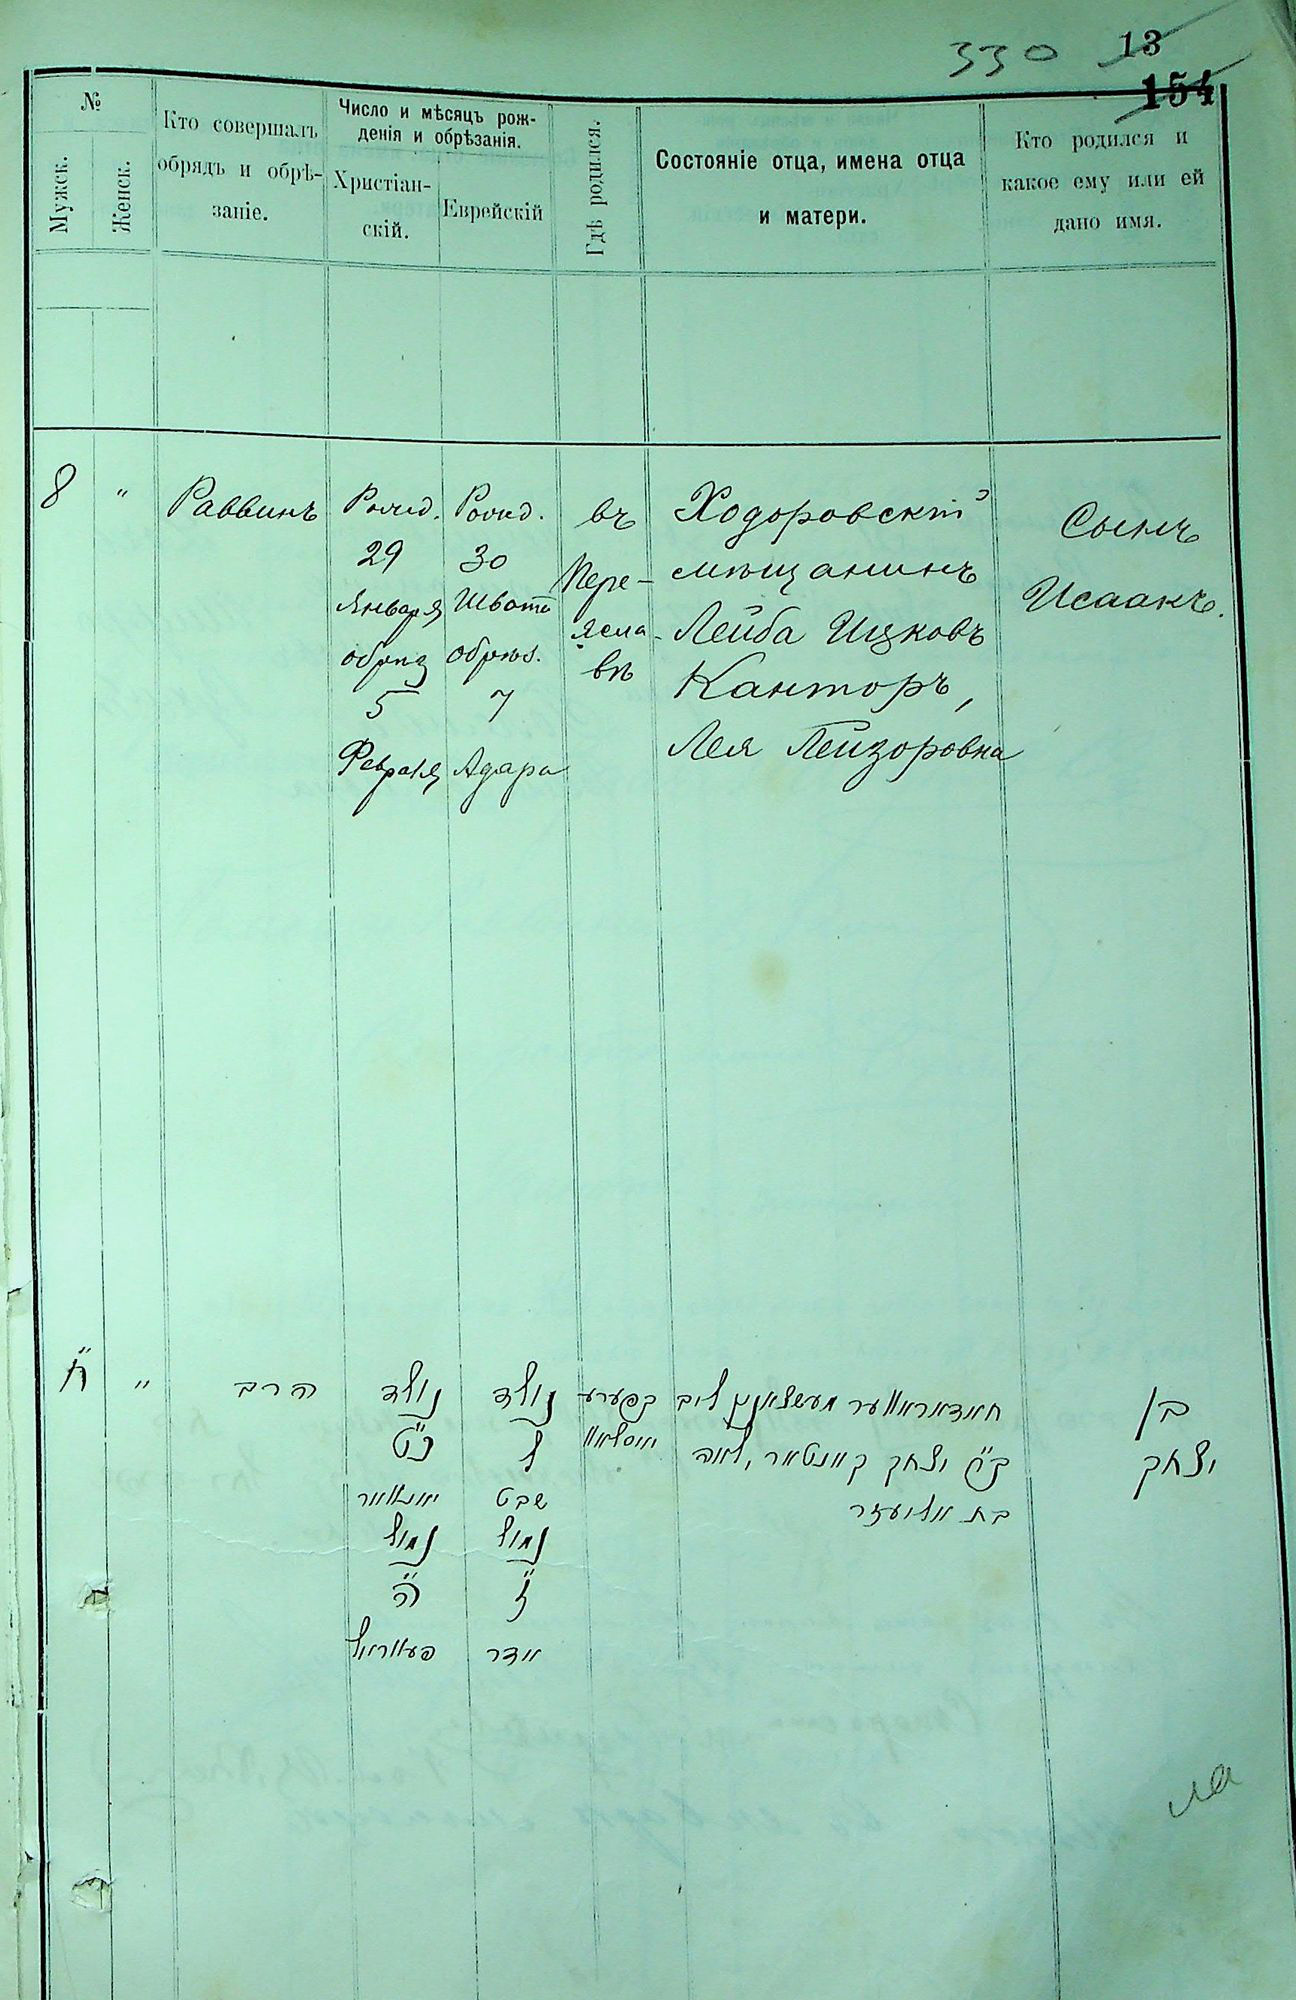 330 13
154
№
Мужск.
Женск.
Кто совершалъ
обрядъ и обрѣ-
заніе.
Число и мѣсяцъ рож-
денія и обрѣзанія.
Христіан-
скій.
Еврейскій
Гдѣ родился.
Состояніе отца, имена отца
и матери.
Кто родился и
какое ему или ей
дано имя.
8
"
Раввинъ
Рожд.
29
Января
обрѣз
5
Февраля
Рожд.
30
Швата
обрѣз.
7
Адара
въ
Пере-
ясла-
вѣ
Ходоровскій
мѣщанинъ
Лейба Ицковъ
Канторъ,
Лея Лейзоровна
Сынъ
Исаакъ.
ח"
"
הרב
נולד
כ"ט
יאנואר
נמול
ה"
פעווראל
נולד
ל
שבט
נמול
ז"
אדר
בפערע
יאסלאוו
חאדאראווער מעשצאנין ליב
ב"ר יצחק קאנטאר, לאה
בת אליעזר
בן
יצחק